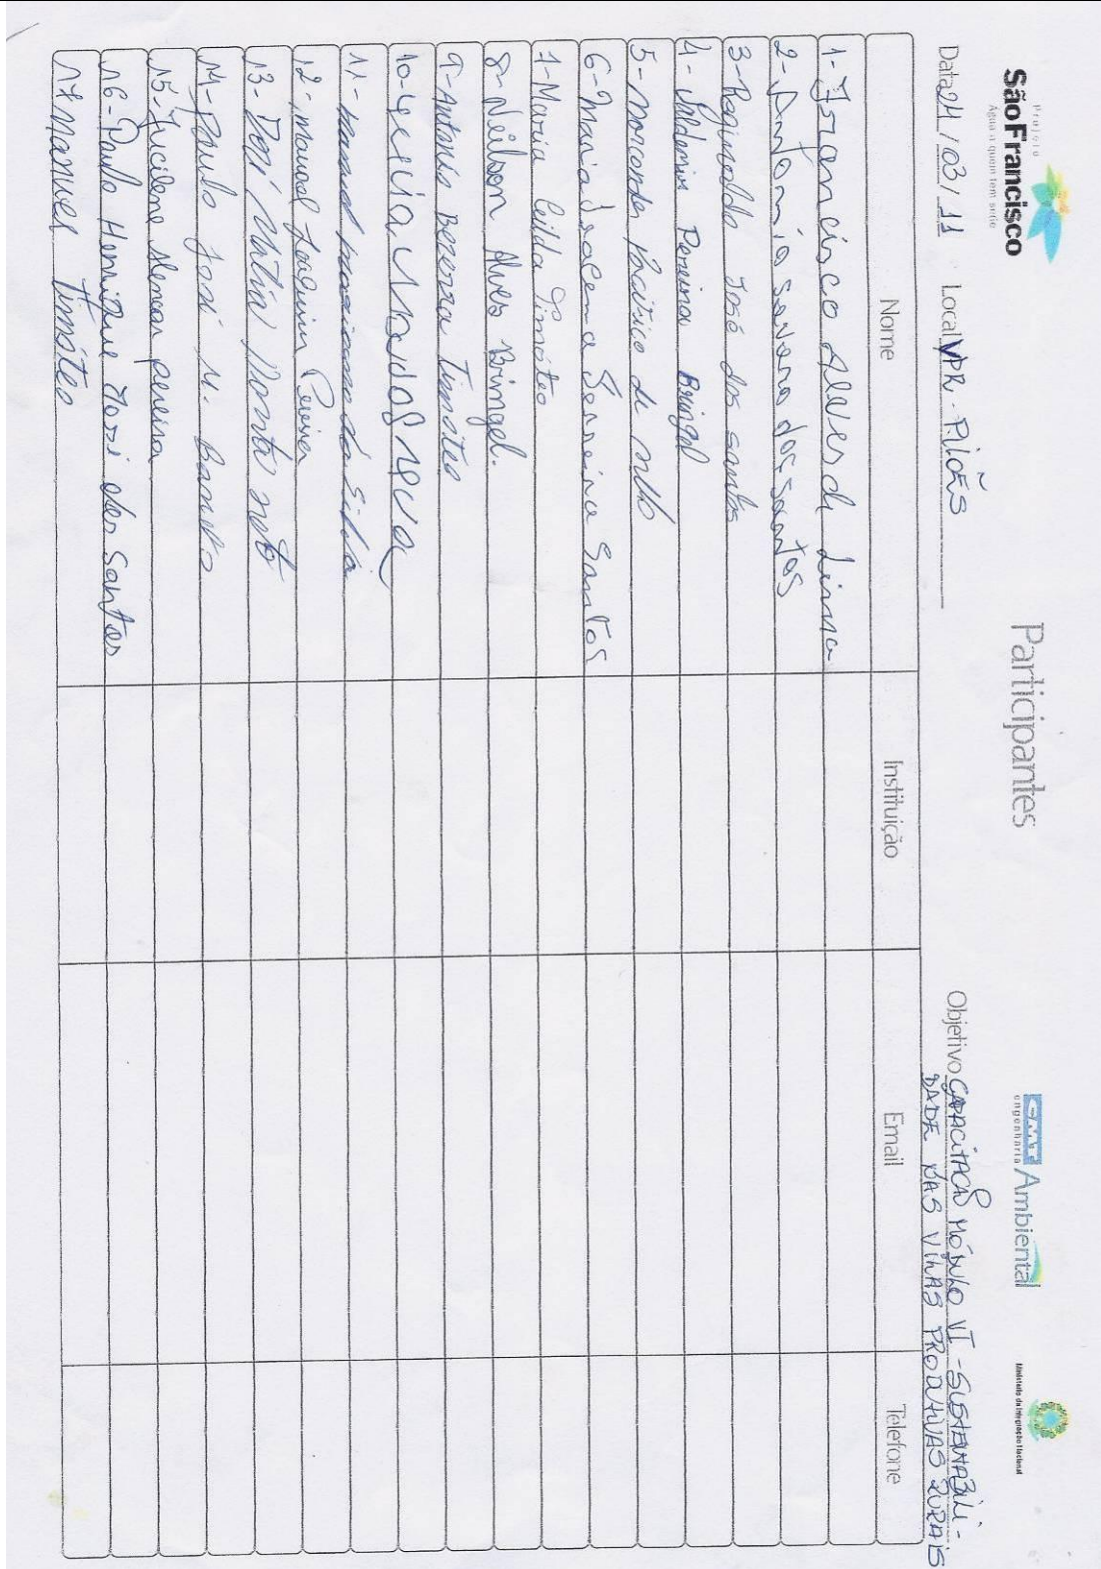 Projeto
São Francisco
Água a quem tem sede
Participantes
CMT Ambiental
engenharia
Ministério da Integração Nacional
Data 24/03/11 Local VPR - PilõES
Objetivo CAPACITAÇÃO MÓDULO VI - SUSTENTABILI-
DADE DAS VILAS PRODUTIVAS RURAIS
Nome Instituição Email Telefone
1- Francisco Alves de Lima
2- Antonio Severo dos Santos
3- Reginaldo José dos santos
4- Valdemir Pereira Bringel
5- Marcondes Pacífico de
6- Maria Iracema Ferreira Santos
7- Maria Ceilda Timóteo
8- Neilson Alves Bringel.
9- Antonio Bezerra Timóteo
10-
11- da Silva
12- Manoel Joaquim Pereira
13- neto
14- Paulo José M.
15- Jucilene Alencar pereira
16- Paulo Henrique José dos Santos
17 Manuel Timóteo